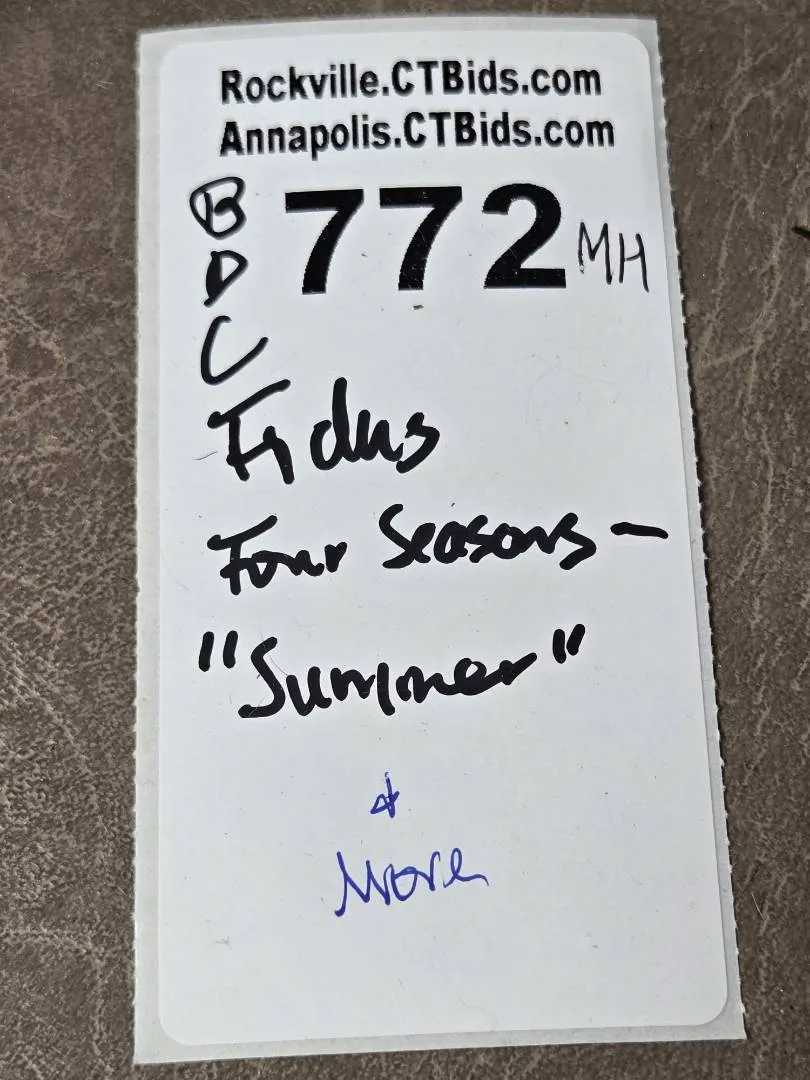 Rockville.CTBids.com
Annapolis.CTBids.com
B 772 MH
D
C
Fidus
Four Seasons -
"Summer"
&
More